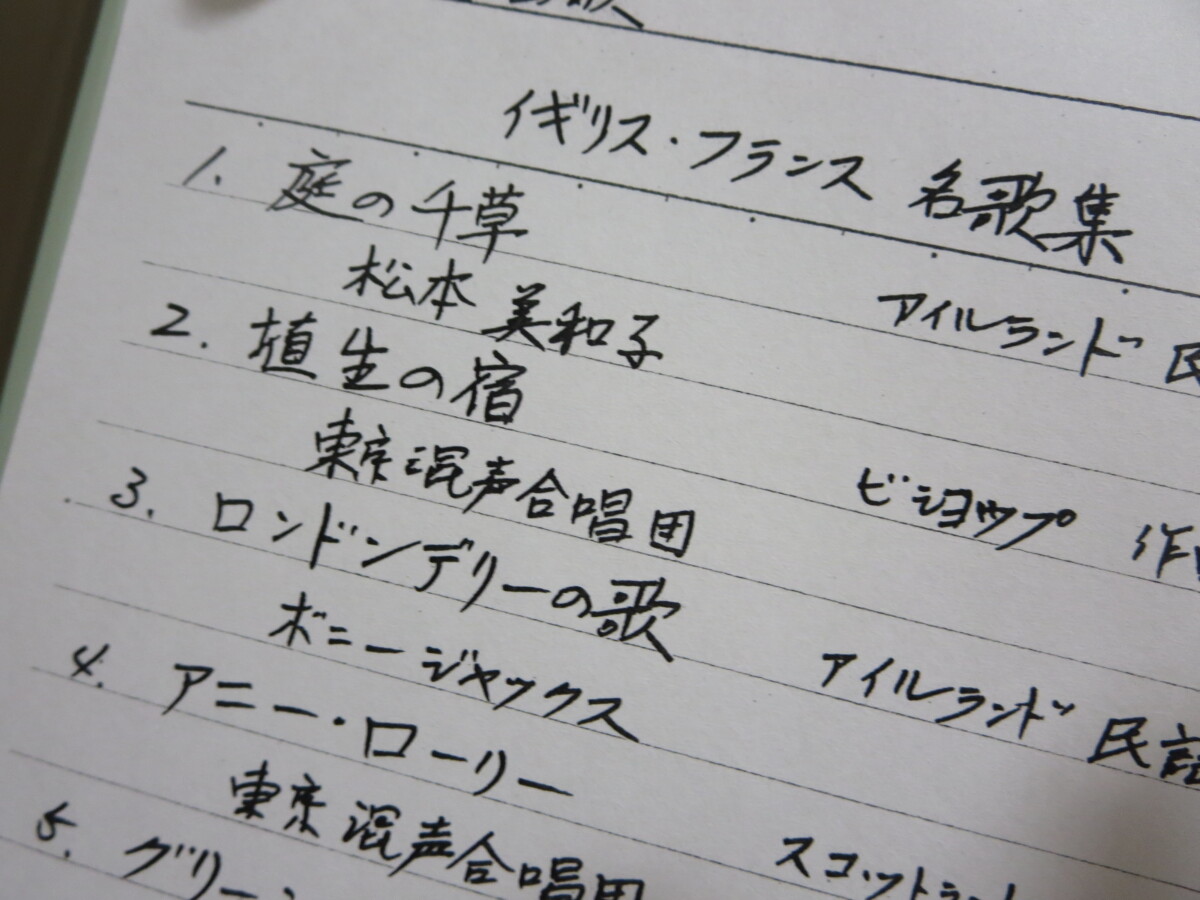 イギリス・フランス 名歌集
1. 庭の千草
アイルランド 民
松本 美和子
2. 埴生の宿
ビショップ 作
東京混声合唱団
3. ロンドンデリーの歌
アイルランド 民謡
ボニージャックス
4. アニー・ローリー
スコットラン
東京混声合唱団
5. グリー